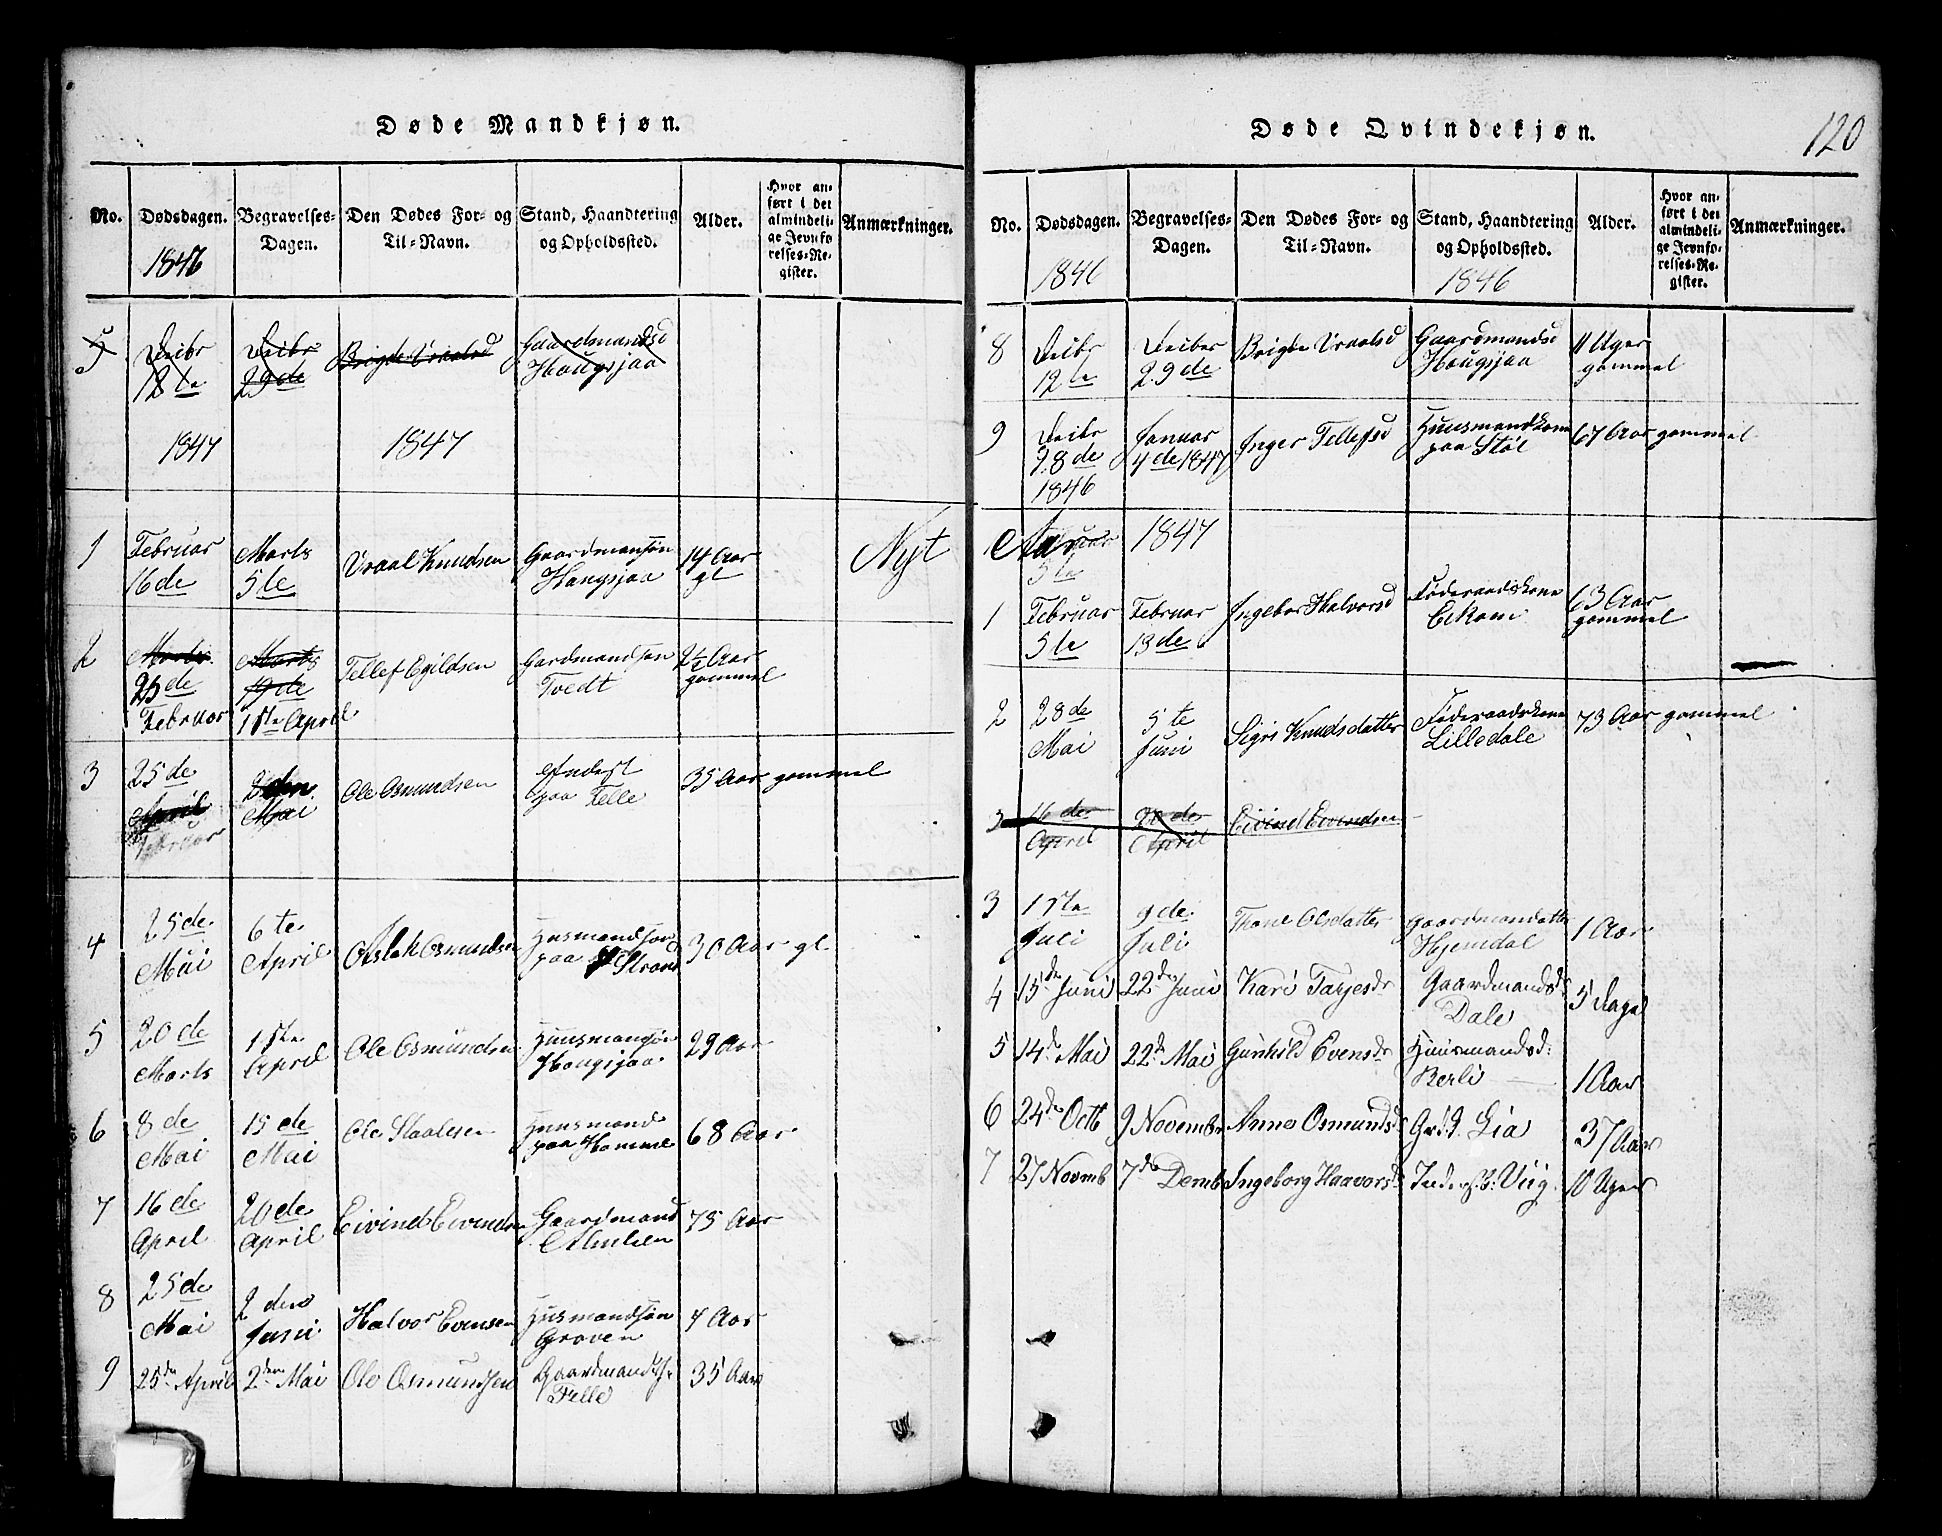 Døde Mandkjøn.
No. Dødsdagen. Begravelses-Dagen. Den Dødes For- og Til-Navn. Stand, Haandtering og Opholdssted. Alder. Hvor anført i det almindelige Jevnførelses-Register. Anmærkninger.
1846
5 Decbr 12te Decbr 29de Brigde Uraalsd Gaardmandsd Hougsjaa
1847 1847
1 Februar 16de Marts 5te Vraal Knudsen Gaardmansøn Hougsjaa 14 Aar gl Nyt
2 Marts 25de Februar Marts 19de 1ste April Tellef Egildsen Gardmandsøn Tvedt 2½ Aar gammel
3 25de April Februar 2den Mai Ole Osmundsen Inderst paa Felle 35 Aar gammel
4 25de Mai 6te April Aslak Osmundsen Husmandsøn paa Strand 30 Aar gl
5 20de Marts 1ste April Ole Osmundsen Huusmansøn Hougsjaa 29 Aar
6 8de Mai 15de Mai Ole Staalesen Huusmand paa Homme 68 Aar
7 16de April 20de April Eivind Evensen Gaardmand 75 Aar
8 25de Mai 2den Juni Halvor Evensen Husmandsøn Groven 4 Aar
9 25de April 2den Mai Ole Osmundsen Gaardmands: Felle 35 Aar
Døde Qvindekjøn. 120
No. Dødsdagen. Begravelses-Dagen. Den Dødes For- og Til-Navn. Stand, Haandtering og Opholdssted. Alder. Hvor anført i det almindelige Jevnførelses-Register. Anmærkninger.
1846 1846
8 Decbr 12te Decber 29de Brigde Vraalsd Gaardmandsd Hougsjaa 11 Uger gammel
9 Decbr 28de 1846 Januar 4de 1847 Inger Tellefsd Huusmandkone paa Støl 67 Aar gammel
Aar 1847
5te
1 Februar 5te Februar 13de Ingebor Halvorsd Føderaadskone 63 Aar gammel
2 28de Mai 5te Juni Sigri Knudsdatter Føderaadskone Lilledale 73 Aar gammel
3 16de April 20de April Eivind Evensen
3 1ste Juli 9de Juli Thone Olsdatter Gaardmandatter Hjemdal 1 Aar
4 15de Juni 22de Juni Kari Tarjesdr Gaardmandsd: Dale 5 Dage
5 14de Mai 22de Mai Gunhild Evensdr Huusmandsd: Berli 1 Aar
6 24de Octb 9 Novembr Anne Osmundsdr Grdd. Lia 37 Aar
7 27 Novmb 7de Decmb Ingeborg Haavorsdr Inderst: Viig. 10 Uger